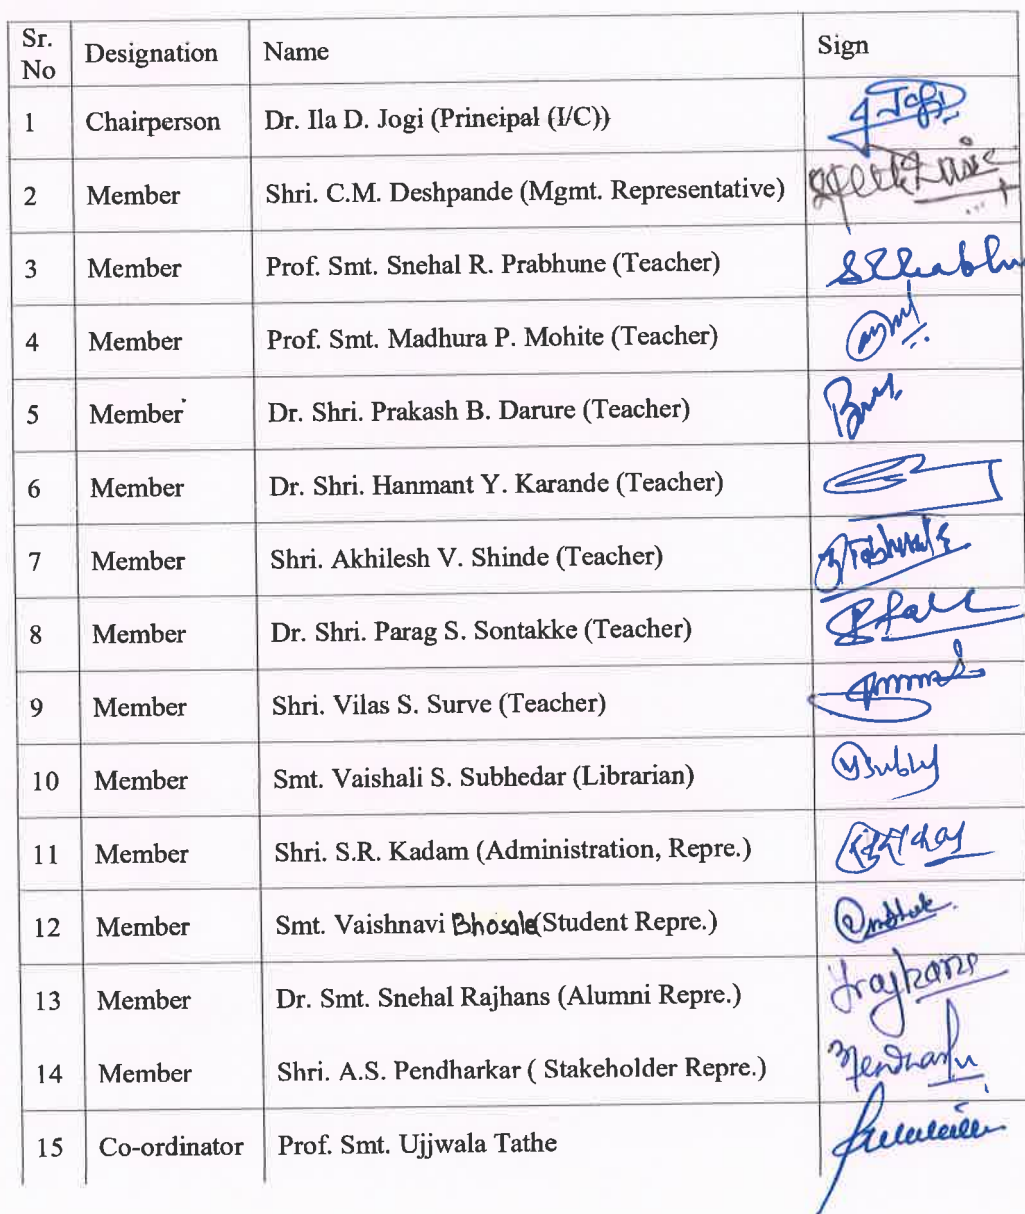 Sr. No Designation Name Sign
1 Chairperson Dr. Ila D. Jogi (Principal (I/C))
2 Member Shri. C.M. Deshpande (Mgmt. Representative)
3 Member Prof. Smt. Snehal R. Prabhune (Teacher)
4 Member Prof. Smt. Madhura P. Mohite (Teacher)
5 Member Dr. Shri. Prakash B. Darure (Teacher)
6 Member Dr. Shri. Hanmant Y. Karande (Teacher)
7 Member Shri. Akhilesh V. Shinde (Teacher)
8 Member Dr. Shri. Parag S. Sontakke (Teacher)
9 Member Shri. Vilas S. Surve (Teacher)
10 Member Smt. Vaishali S. Subhedar (Librarian)
11 Member Shri. S.R. Kadam (Administration, Repre.)
12 Member Smt. Vaishnavi Bhosale(Student Repre.)
13 Member Dr. Smt. Snehal Rajhans (Alumni Repre.)
14 Member Shri. A.S. Pendharkar ( Stakeholder Repre.)
15 Co-ordinator Prof. Smt. Ujjwala Tathe